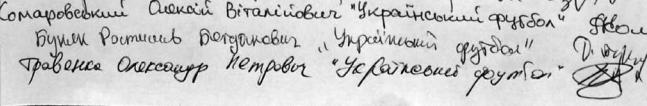 Комаровський Олексій Віталійович "Український футбол"
Букля Ростислав Богданович „Український футбол"
Травенко Олександр Петрович "Український футбол"